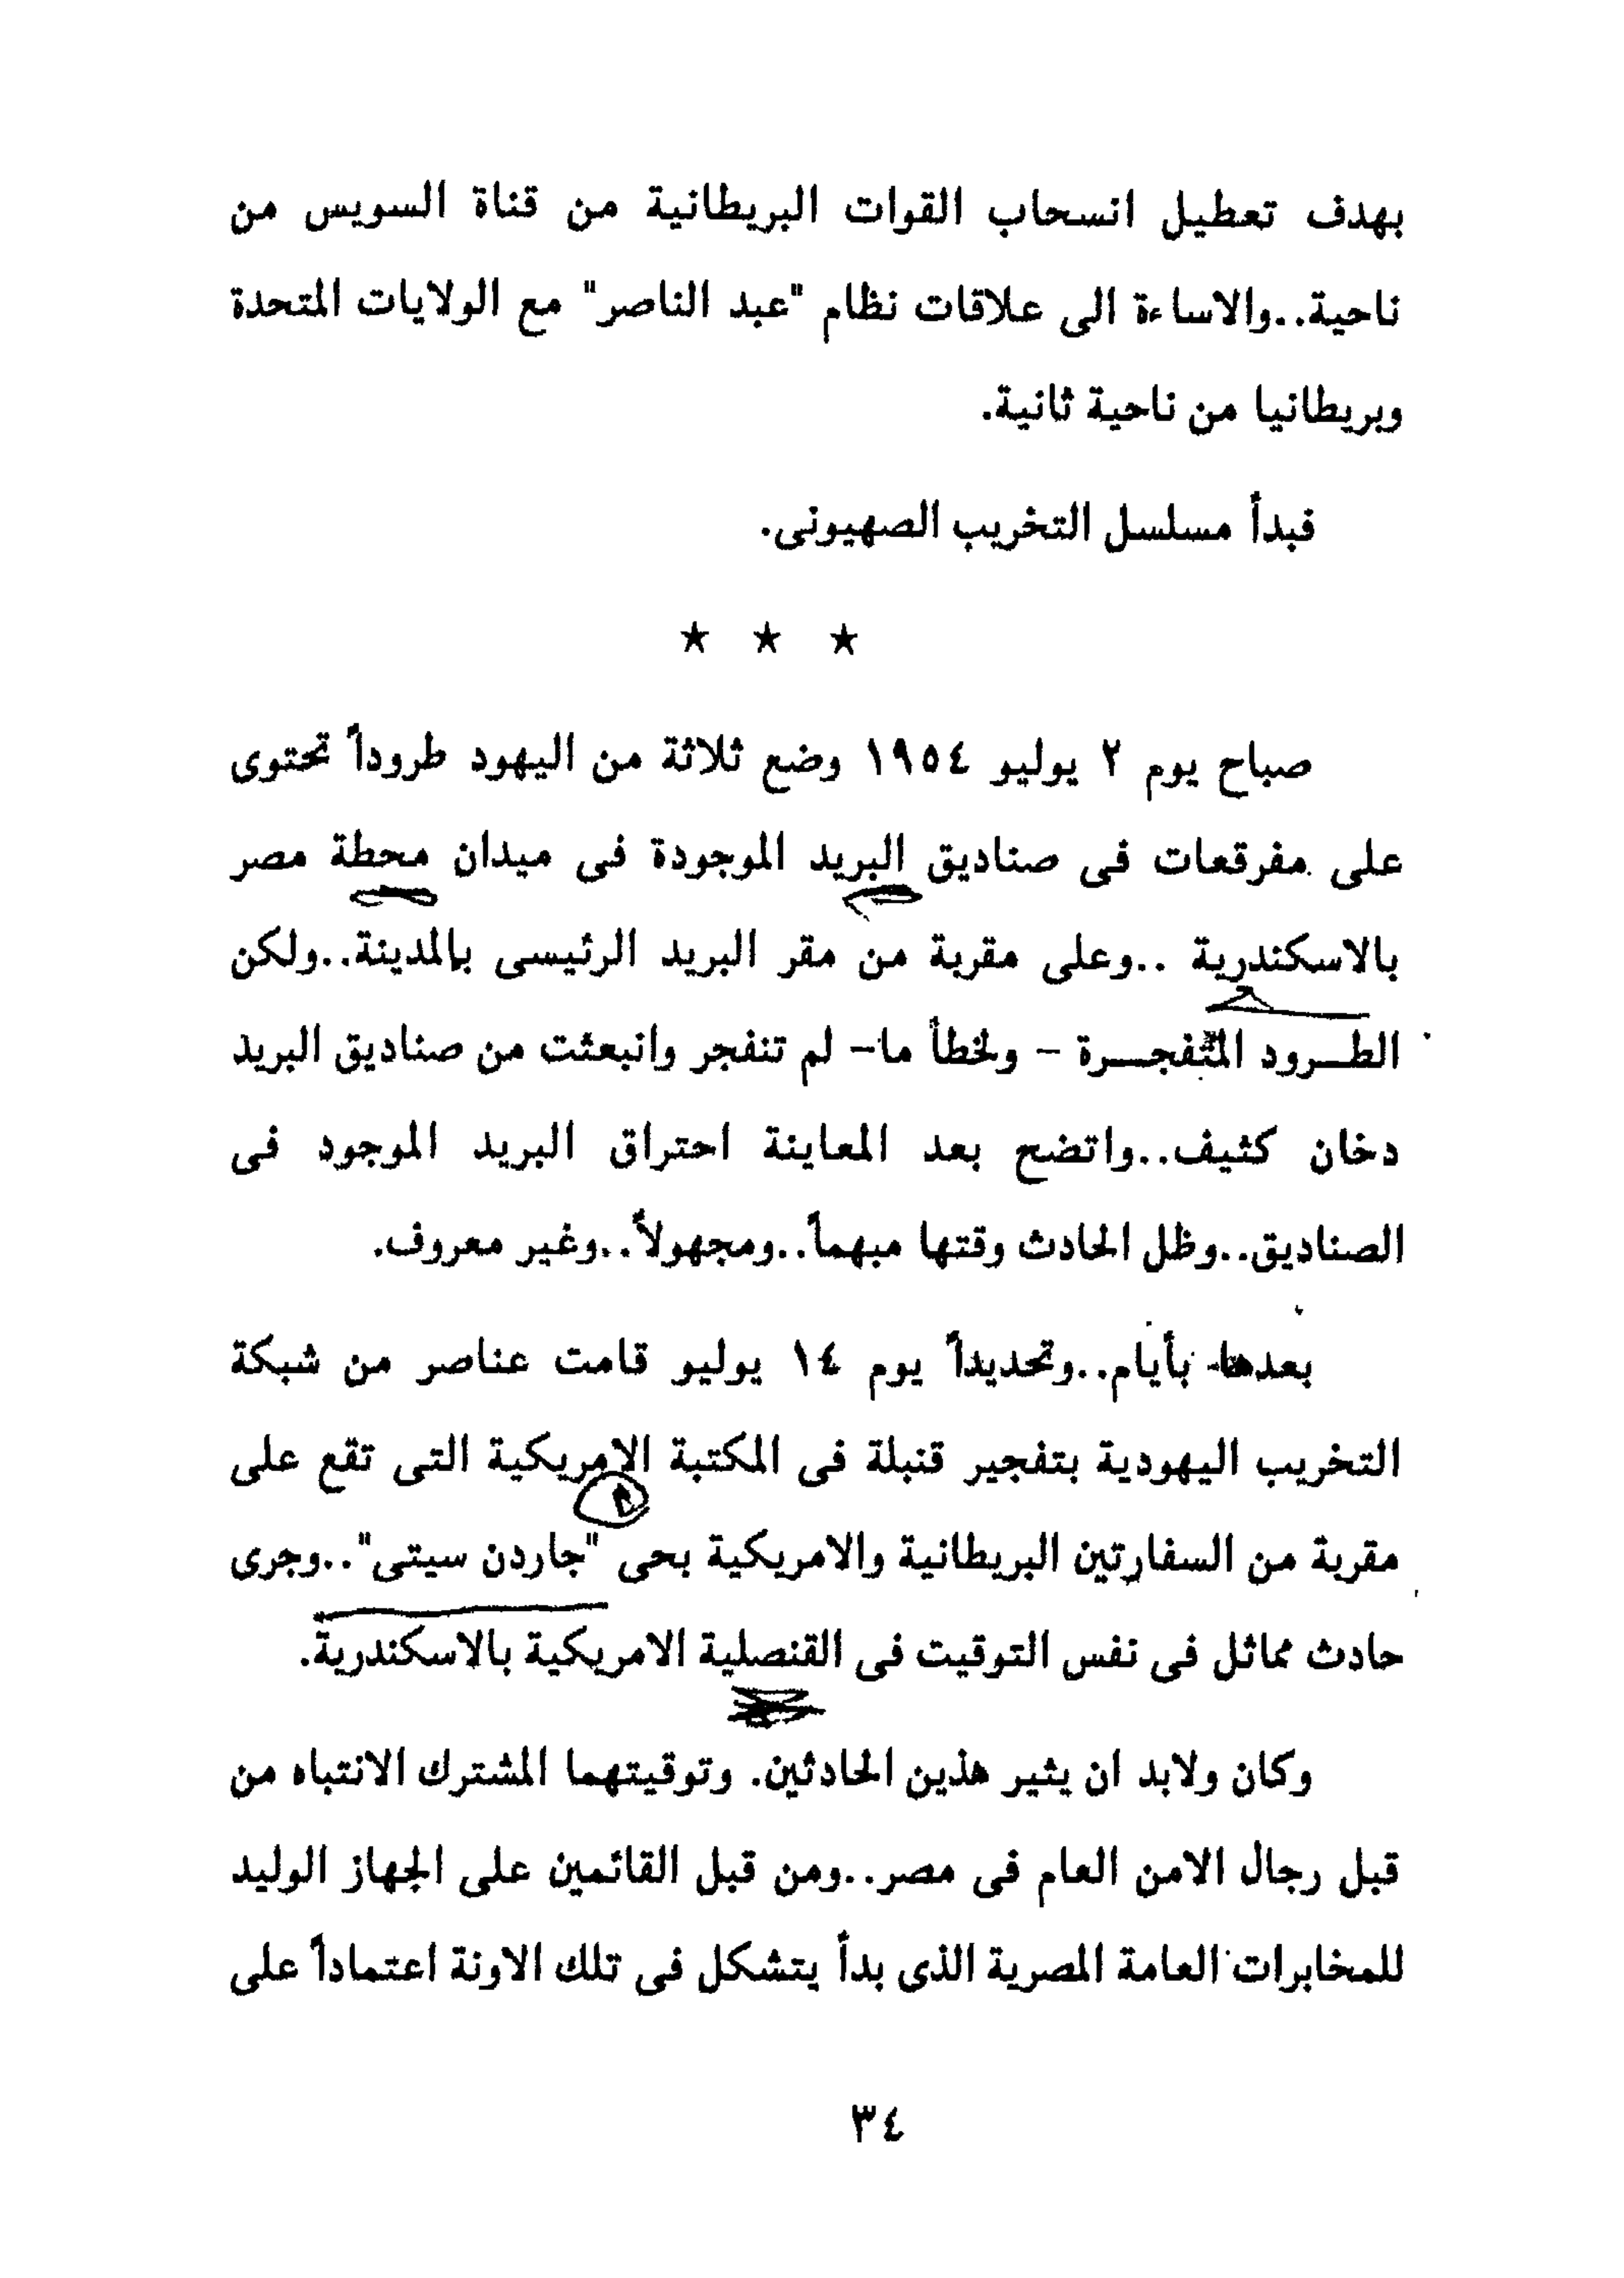 بهدف تعطيل انسحاب القوات البريطانية من قناة السويس من
ناحية..والاساءة الى علاقات نظام "عبد الناصر" مع الولايات المتحدة
وبريطانيا من ناحية ثانية.
فبدأ مسلسل التخريب الصهيونى.
★ ★ ★
صباح يوم ٢ يوليو ١٩٥٤ وضع ثلاثة من اليهود طروداً تحتوى
على مفرقعات فى صناديق البريد الموجودة فى ميدان محطة مصر
بالاسكندرية ..وعلى مقربة من مقر البريد الرئيسى بالمدينة..ولكن
الطـرود المتفجـرة - ولخطأ ما- لم تنفجر وانبعثت من صناديق البريد
دخان كثيف..واتضح بعد المعاينة احتراق البريد الموجود فى
الصناديق..وظل الحادث وقتها مبهماً..ومجهولاً..وغير معروف.
بعدها بأيام..وتحديداً يوم ١٤ يوليو قامت عناصر من شبكة
التخريب اليهودية بتفجير قنبلة فى المكتبة الامريكية التى تقع على
مقربة من السفارتين البريطانية والامريكية بحى "جاردن سيتى"..وجرى
حادث مماثل فى نفس التوقيت فى القنصلية الامريكية بالاسكندرية.
وكان ولابد ان يثير هذين الحادثين. وتوقيتهما المشترك الانتباه من
قبل رجال الامن العام فى مصر..ومن قبل القائمين على الجهاز الوليد
للمخابرات العامة المصرية الذى بدأ يتشكل فى تلك الاونة اعتماداً على
٣٤